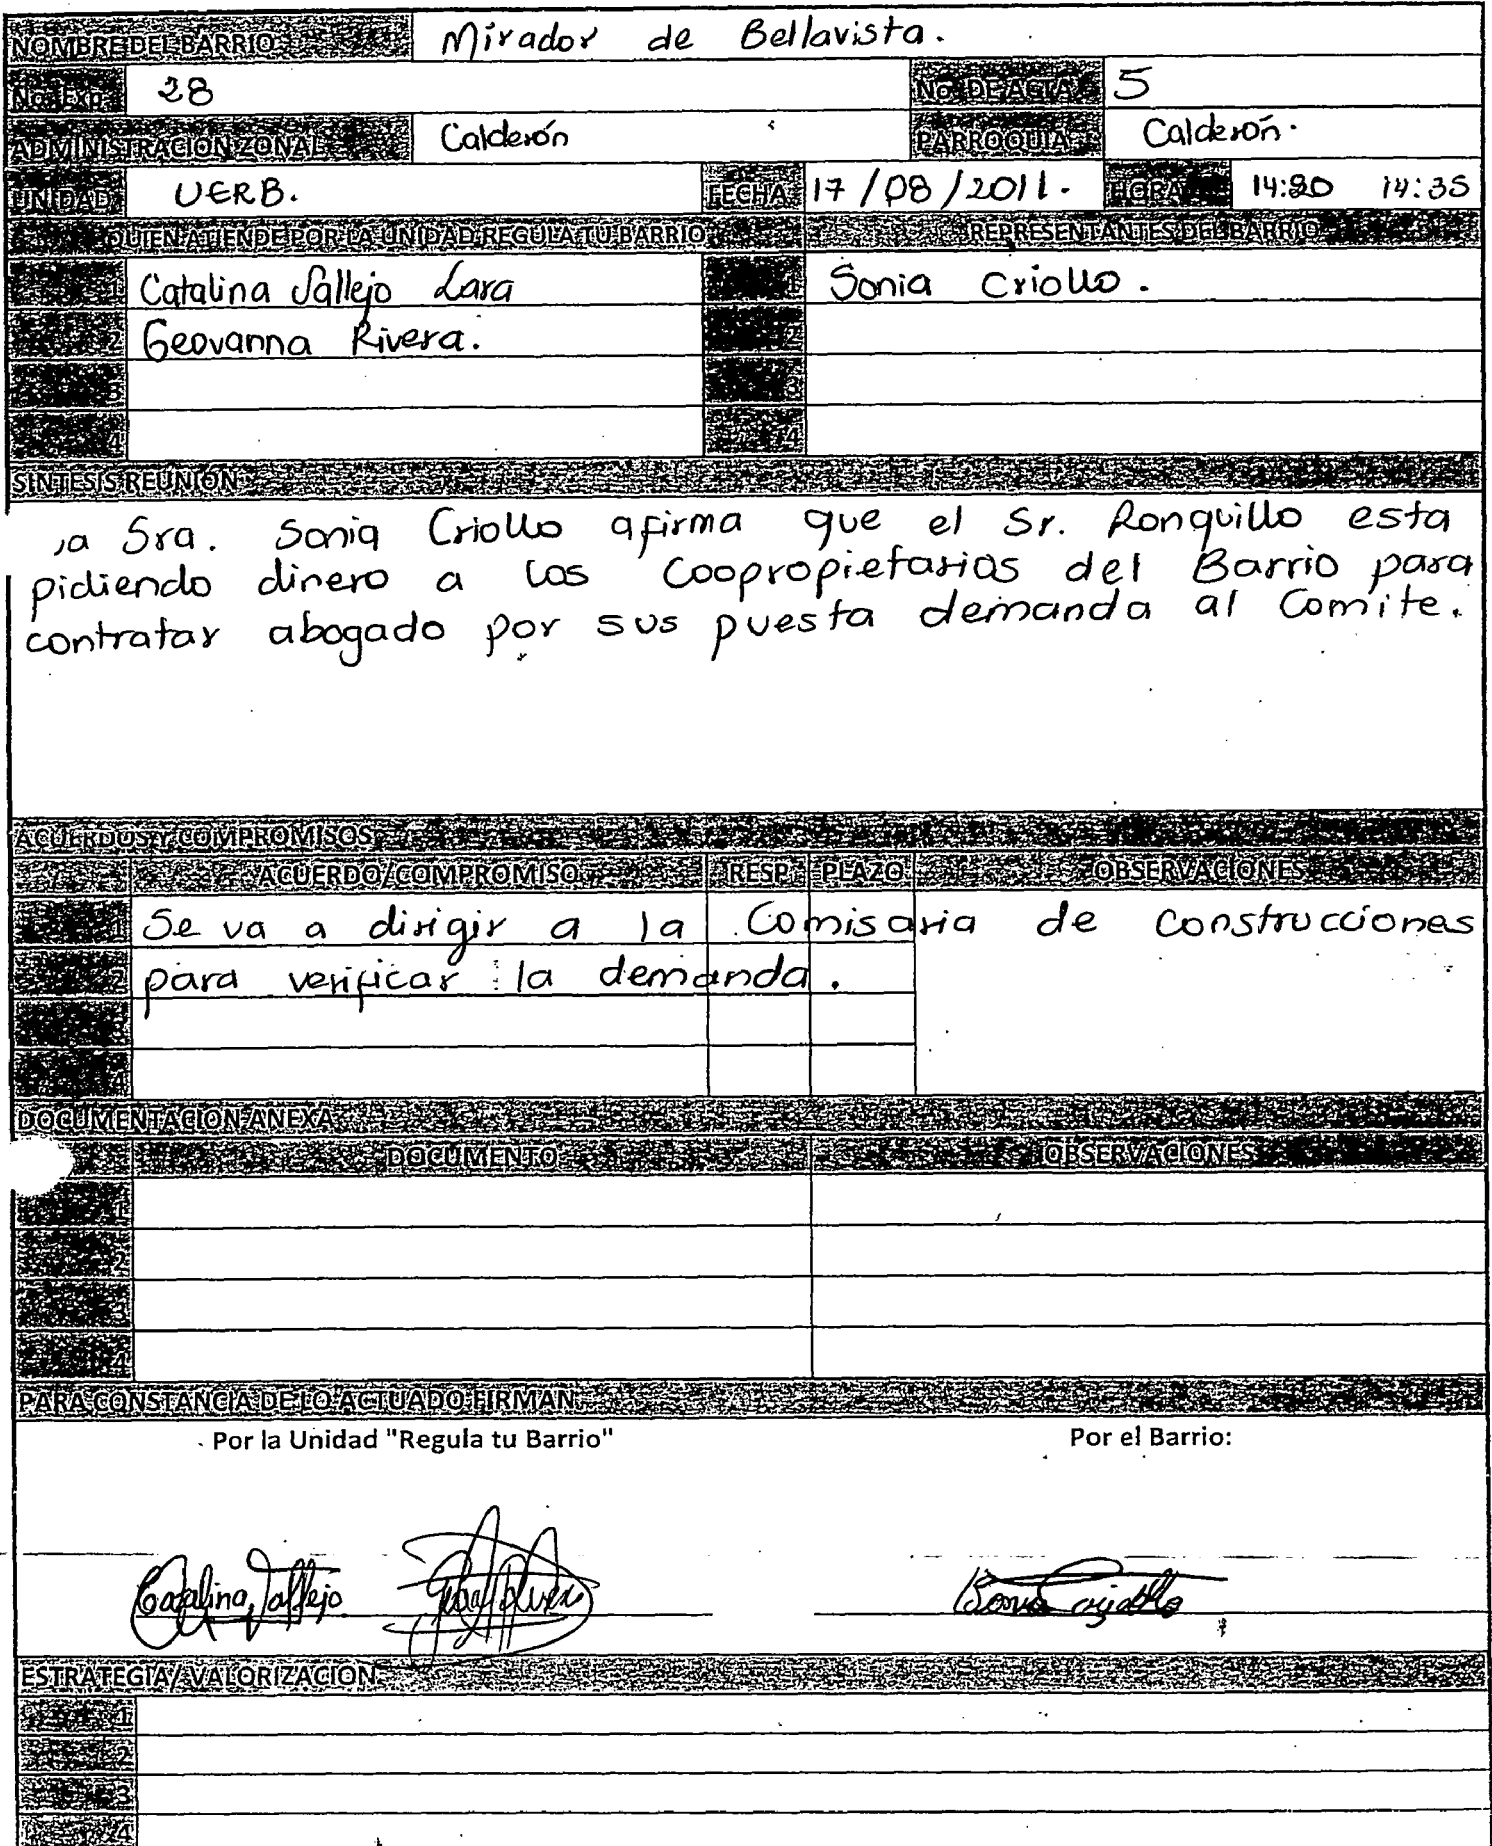 NOMBRE DEL BARRIO Mirador de Bellavista.
No. Exp. 28 No. DE ACTA 5
ADMINISTRACION ZONAL Calderón PARROQUIA Calderón.
UNIDAD UERB. FECHA 17/08/2011. HORA 14:20 14:35
QUIEN ATIENDE POR LA UNIDAD REGULA TU BARRIO REPRESENTANTES DEL BARRIO
1 Catalina Vallejo Lara 1 Sonia Criollo.
2 Geovanna Rivera. 2
3 3
4 4
SINTESIS REUNION
a Sra. Sonia Criollo afirma que el Sr. Ronquillo esta
pidiendo dinero a los Coopropietarios del Barrio para
contratar abogado por sus puesta demanda al Comite.
ACUERDOS Y COMPROMISOS
ACUERDO/COMPROMISO RESP. PLAZO OBSERVACIONES
1 Se va a dirigir a la Comisaria de Construcciones
2 para verificar la demanda.
3
4
DOCUMENTACION ANEXA
DOCUMENTO OBSERVACIONES
1
2
3
4
PARA CONSTANCIA DE LO ACTUADO FIRMAN
Por la Unidad "Regula tu Barrio" Por el Barrio:
Catalina Vallejo
ESTRATEGIA/VALORIZACION
1
2
3
4